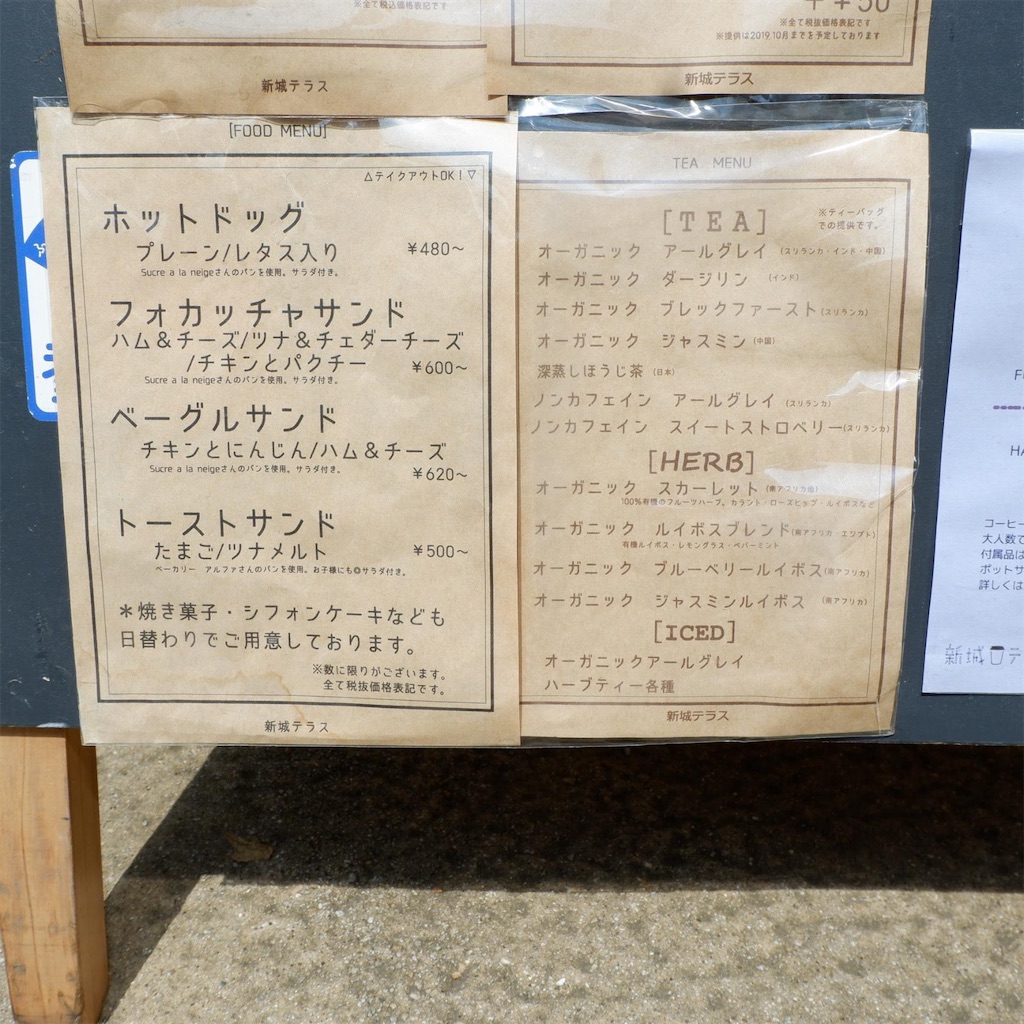 ※全て税込価格表記です
新城テラス
※全て税抜価格表記です
※提供は2019.10月までを予定しております
新城テラス
[FOOD MENU]
△テイクアウトOK!▽
ホットドッグ
プレーン/レタス入り ¥480~
Sucre a la neigeさんのパンを使用。サラダ付き。
フォカッチャサンド
ハム&チーズ/ツナ&チェダーチーズ
/チキンとパクチー ¥600~
Sucre a la neigeさんのパンを使用。サラダ付き。
ベーグルサンド
チキンとにんじん/ハム&チーズ
Sucre a la neigeさんのパンを使用。サラダ付き。
¥620~
トーストサンド
たまご/ツナメルト ¥500~
ベーカリー アルファさんのパンを使用。お子様にも◎サラダ付き。
*焼き菓子・シフォンケーキなども
日替わりでご用意しております。
※数に限りがございます。
全て税抜価格表記です。
新城テラス
TEA MENU
[TEA]
※ティーバッグ
での提供です。
オーガニック アールグレイ (スリランカ・インド・中国)
オーガニック ダージリン (インド)
オーガニック ブレックファースト(スリランカ)
オーガニック ジャスミン (中国)
深蒸しほうじ茶 (日本)
ノンカフェイン アールグレイ (スリランカ)
ノンカフェイン スイートストロベリー(スリランカ)
[HERB]
オーガニック スカーレット (南アフリカ他)
100%有機のフルーツハーブ。カラント・ローズヒップ・ルイボスなど
オーガニック ルイボスブレンド(南アフリカ・エジプト)
有機ルイボス・レモングラス・ペパーミント
オーガニック ブルーベリールイボス(南アフリカ)
オーガニック ジャスミンルイボス (南アフリカ)
[ICED]
オーガニックアールグレイ
ハーブティー各種
新城テラス
コーヒー
大人数で
付属品は
ポットサ
詳しくは
新城テ